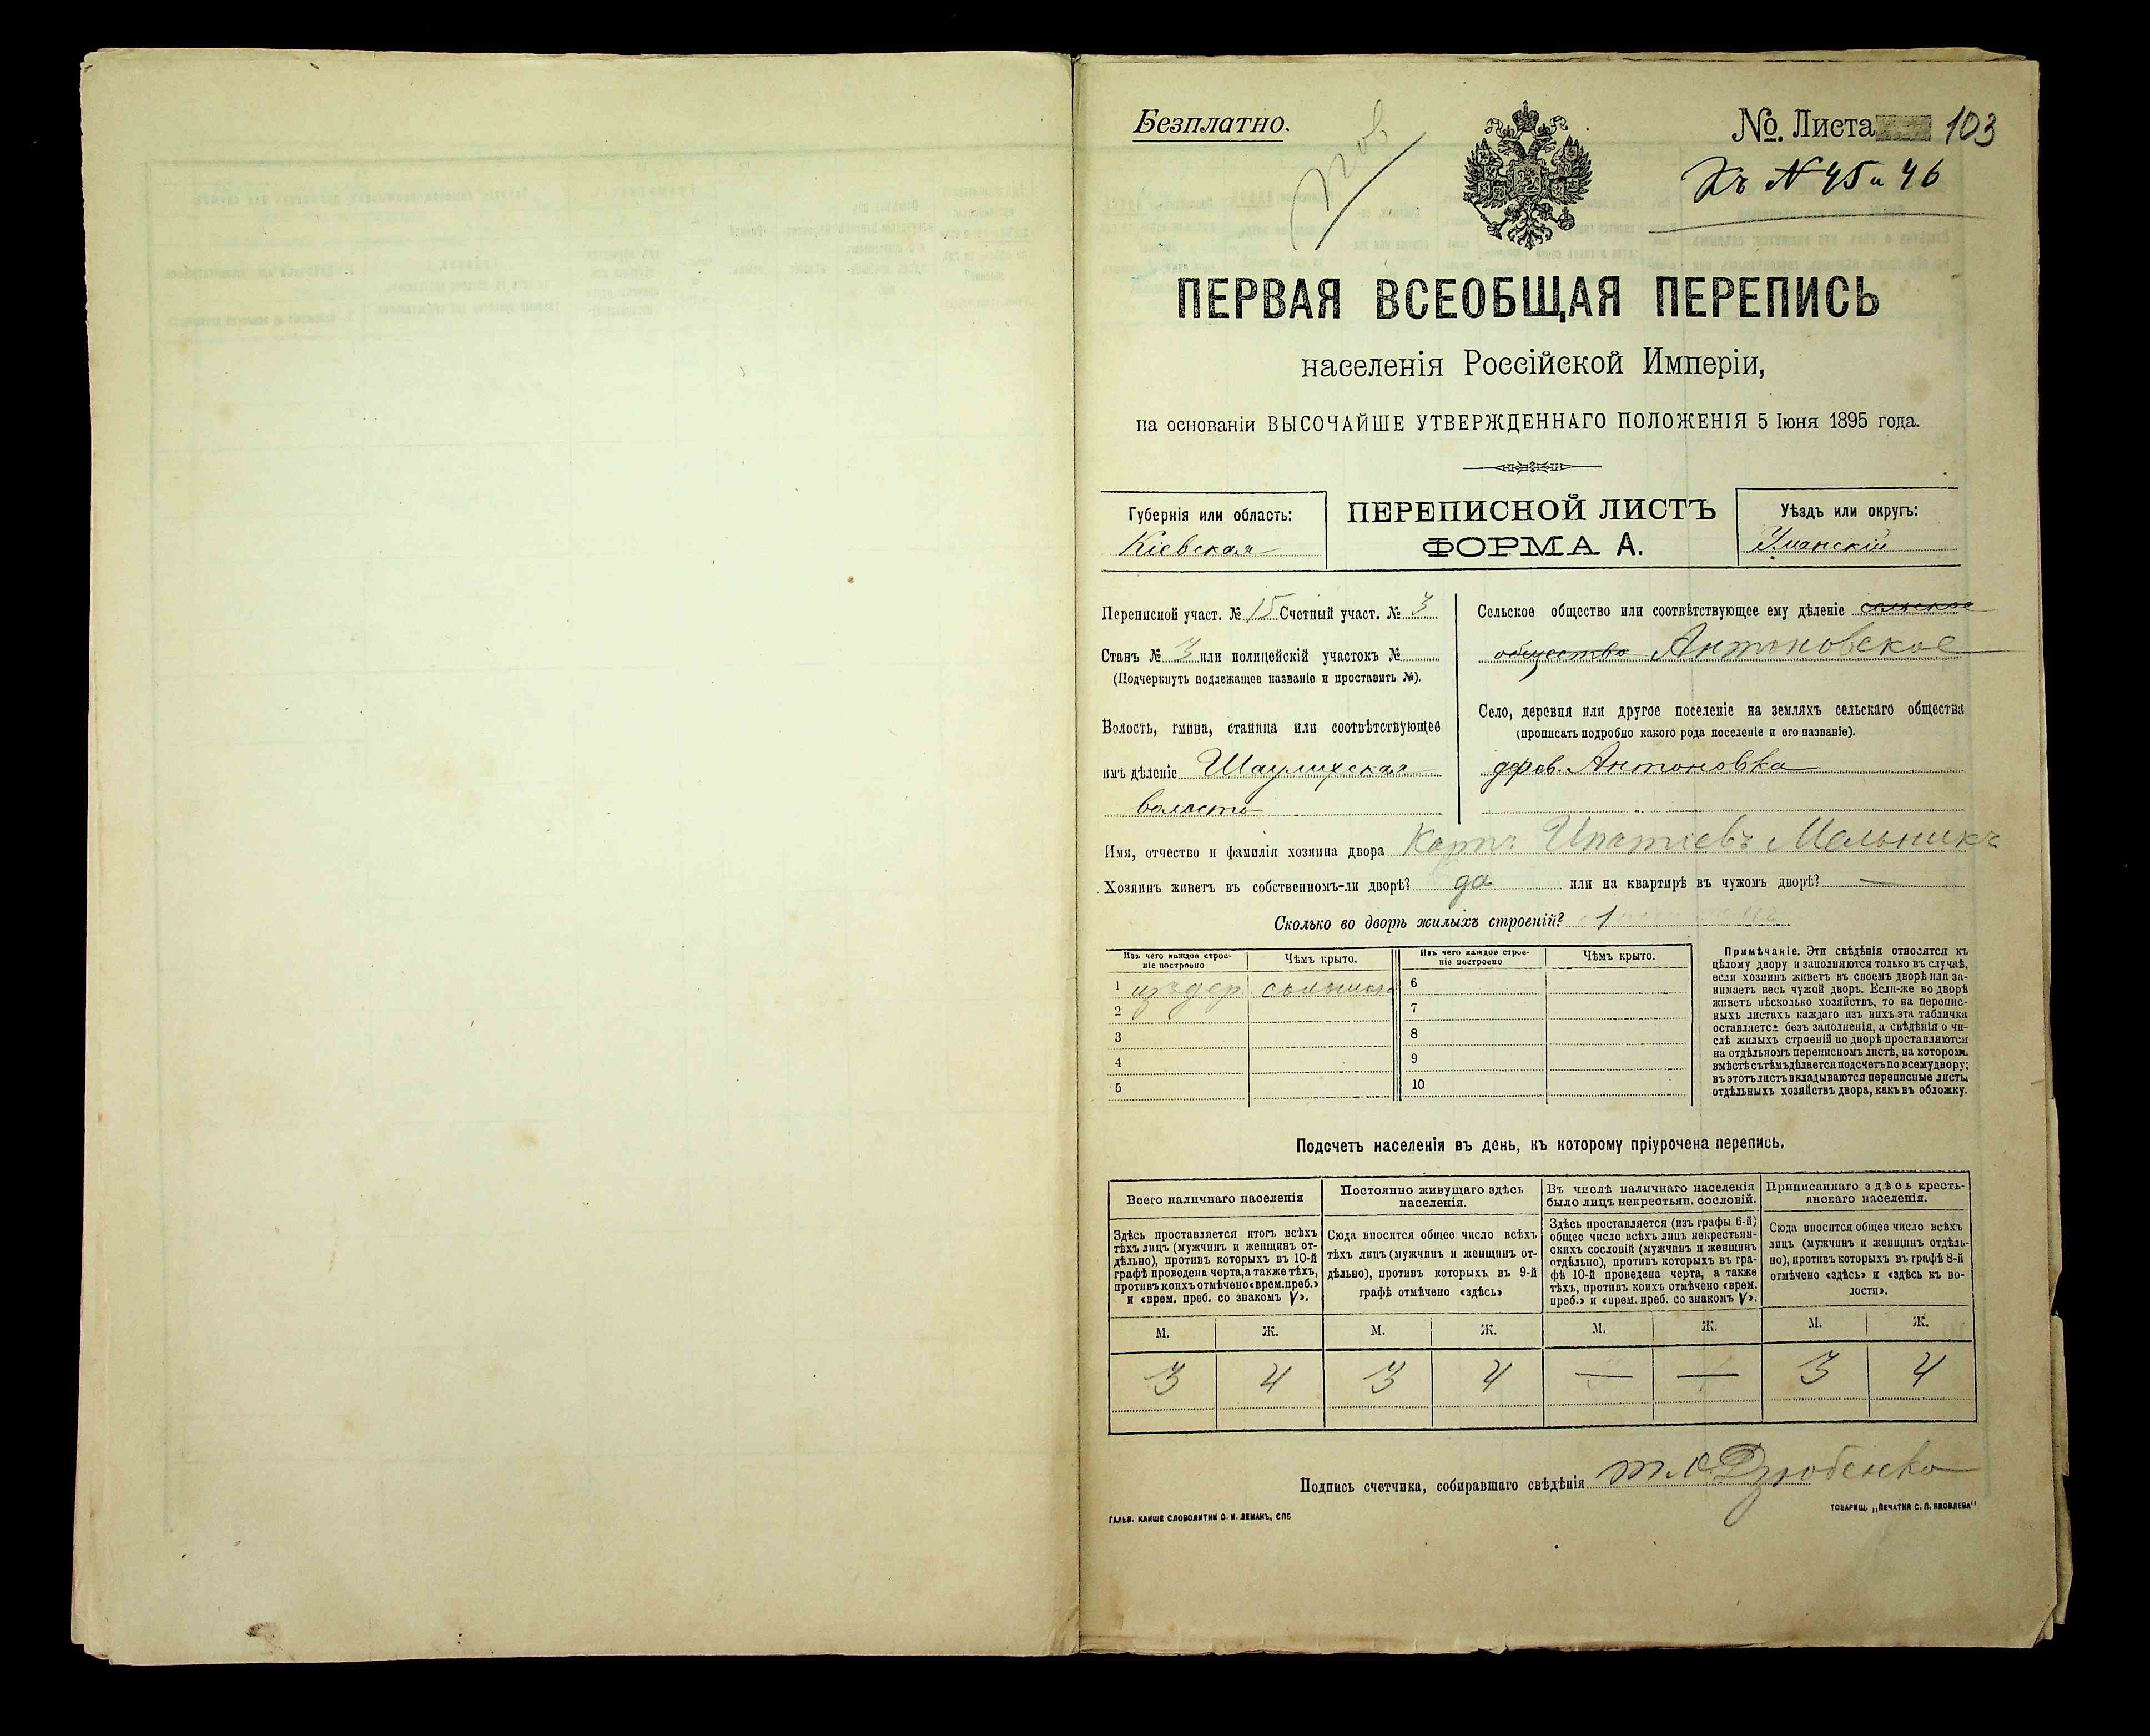 Безплатно.
№ Листа 103
Къ № 45 и 46
ПЕРВАЯ ВСЕОБЩАЯ ПЕРЕПИСЬ
населенія Россійской Имперіи,
на основаніи ВЫСОЧАЙШЕ УТВЕРЖДЕННАГО ПОЛОЖЕНІЯ 5 Іюня 1895 года.
Губернія или область:
Кіевская
ПЕРЕПИСНОЙ ЛИСТЪ
ФОРМА А.
Уѣздъ или округъ:
Уманскій
Переписной участ. № 15 Счетный участ. № 3
Станъ № 3 или полицейскій участокъ №
(Подчеркнуть подлежащее названіе и проставить №).
Волость, гмина, станица или соотвѣтствующее
имъ дѣленіе Шаулихская
волость
Сельское общество или соотвѣтствующее ему дѣленіе сельское
общество Антоновское
Село, деревня или другое поселеніе на земляхъ сельскаго общества
(прописать подробно какого рода поселеніе и его названіе).
дерев. Антоновка
Имя, отчество и фамилія хозяина двора Карпъ Ипатіевъ Мельникъ
Хозяинъ живетъ въ собственномъ-ли дворѣ? да или на квартирѣ въ чужомъ дворѣ? —
Сколько во дворѣ жилыхъ строеній? 1
Изъ чего каждое строе-
ніе построено
Чѣмъ крыто.
Изъ чего каждое строе-
ніе построено
Чѣмъ крыто.
1 изъ дер. соломою 6
2 7
3 8
4 9
5 10
Примѣчаніе. Эти свѣдѣнія относятся къ
цѣлому двору и заполняются только въ случаѣ,
если хозяинъ живетъ въ своемъ дворѣ или за-
нимаетъ весь чужой дворъ. Если-же во дворѣ
живетъ нѣсколько хозяйствъ, то на перепис-
ныхъ листахъ каждаго изъ нихъ эта табличка
оставляется безъ заполненія, а свѣдѣнія о чи-
слѣ жилыхъ строеній во дворѣ проставляются
на отдѣльномъ переписномъ листѣ, на которомъ
вмѣстѣ съ тѣмъ дѣлается подсчетъ по всему двору;
въ этотъ листъ вкладываются переписные листы
отдѣльныхъ хозяйствъ двора, какъ въ обложку.
Подсчетъ населенія въ день, къ которому пріурочена перепись.
Всего наличнаго населенія
Здѣсь проставляется итогъ всѣхъ
тѣхъ лицъ (мужчинъ и женщинъ от-
дѣльно), противъ которыхъ въ 10-й
графѣ проведена черта, а также тѣхъ,
противъ коихъ отмѣчено «врем. преб.»
и «врем. преб. со знакомъ V».
Постоянно живущаго здѣсь
населенія.
Сюда вносится общее число всѣхъ
тѣхъ лицъ (мужчинъ и женщинъ от-
дѣльно), противъ которыхъ въ 9-й
графѣ отмѣчено «здѣсь»
Въ числѣ наличнаго населенія
было лицъ некрестьян. сословій.
Здѣсь проставляется (изъ графы 6-й)
общее число всѣхъ лицъ некрестьян-
скихъ сословій (мужчинъ и женщинъ
отдѣльно), противъ которыхъ въ гра-
фѣ 10-й проведена черта, а также
тѣхъ, противъ коихъ отмѣчено «врем.
преб.» и «врем. преб. со знакомъ V».
Приписаннаго здѣсь кресть-
янскаго населенія.
Сюда вносится общее число всѣхъ
лицъ (мужчинъ и женщинъ отдѣль-
но), противъ которыхъ въ графѣ 8-й
отмѣчено «здѣсь» и «здѣсь къ во-
лости».
М. Ж. М. Ж. М. Ж. М. Ж.
3 4 3 4 — — 3 4
Подпись счетчика, собиравшаго свѣдѣнія Дзюбенко
ГАЛЬВ. КЛИШЕ СЛОВОЛИТНИ О. И. ЛЕМАНЪ, СПБ
ТОВАРИЩ. „ПЕЧАТНЯ С. П. ЯКОВЛЕВА"